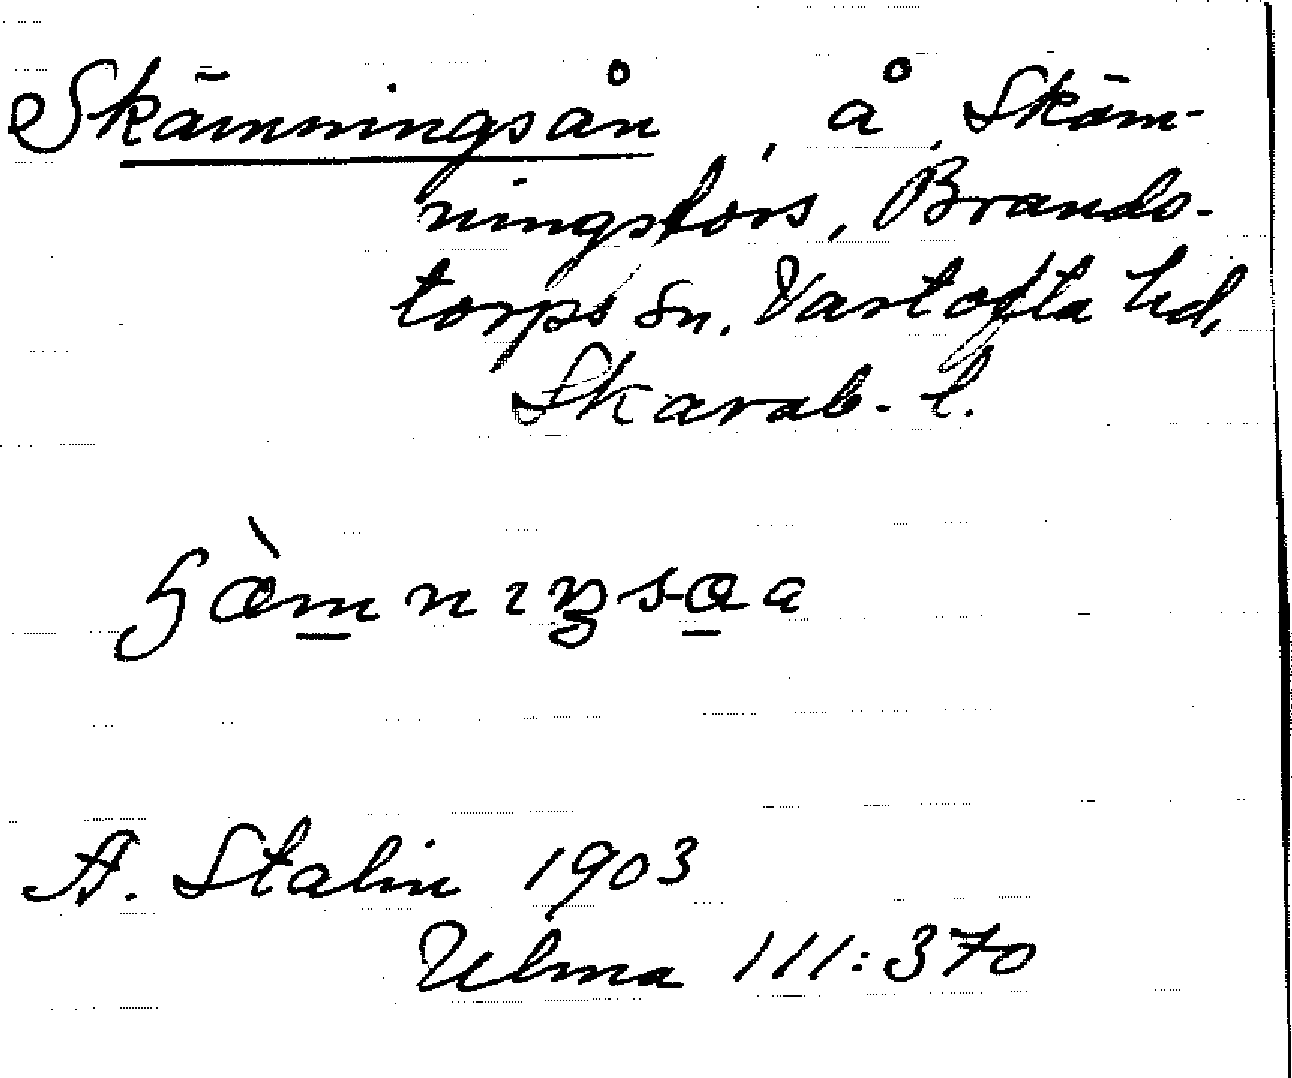 Skämningsån, å, Skäm-
ningsfors, Brands-
torps sn. Vartofta hd,
Skarab. l.
A. Stalin 1903
Ulma 111:370